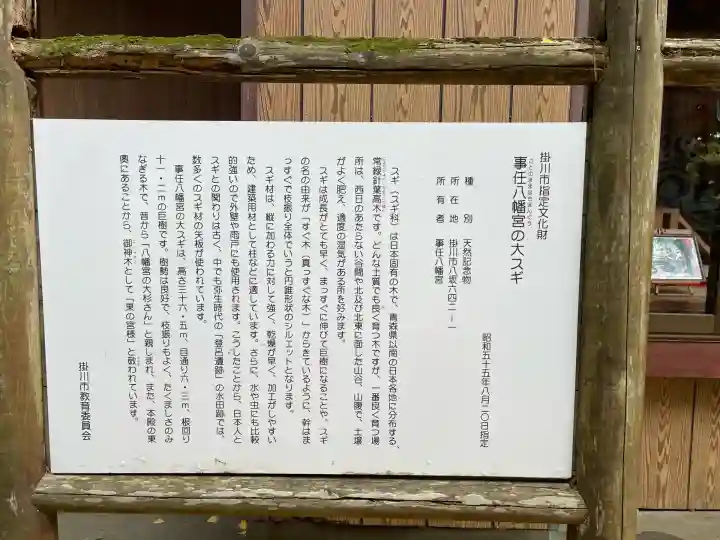 掛川市指定文化財
事任八幡宮の大スギ
昭和五十五年八月二〇日指定
種別 天然記念物
所在地 掛川市八坂六四二ー一
所有者 事任八幡宮
スギ（スギ科）は日本固有の木で、青森県以南の日本各地に分布する、
常緑針葉高木です。どんな土質でも良く育つ木ですが、一番良く育つ場
所は、西日のあたらない谷間や北及び北東に面した山谷、山腹で、土壌
がよく肥え、適度の湿気がある所を好みます。
スギは成長がとても早く、まっすぐに伸びて巨樹になることや、スギ
の名の由来が「すぐ木（真っすぐな木）」からきているように、幹はま
っすぐで枝振り全体でいうと円錐形状のシルエットとなります。
スギ材は、縦に加わる力に対して強く、乾燥が早く、加工がしやすい
ため、建築用材として柱などに適しています。さらに、水や虫にも比較
的強いので外壁や雨戸にも使用されます。こうしたことから、日本人と
スギとの関わりは古く、中でも弥生時代の「登呂遺跡」の水田跡では、
数多くのスギ材の矢板が使われています。
事任八幡宮の大スギは、高さ三十六・五ｍ、目通り六・三ｍ、根回り
十一・二ｍの巨樹です。樹勢は良好で、枝振りもよく、たくましさのみ
なぎる木で、昔から「八幡宮の大杉さん」と親しまれ、また、本殿の東
奥にあることから、御神木として「東の宮様」と敬われています。
掛川市教育委員会